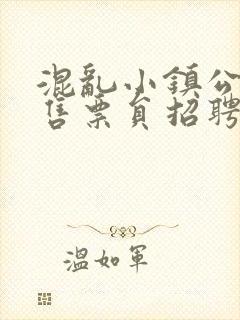 混亂小鎮公
售票員招聘
溫如軍